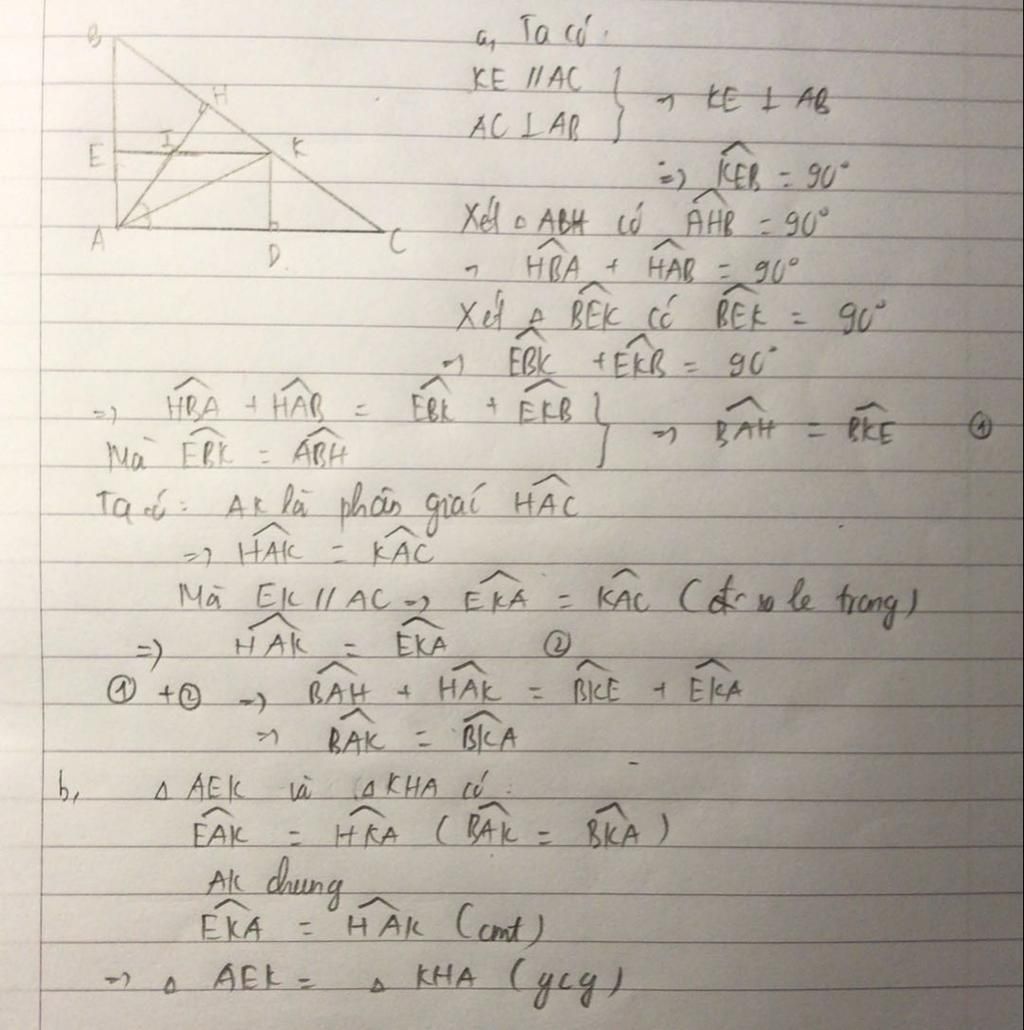 B
H
E I K
A D C
a, Ta có:
KE // AC
AC ⊥ AB } => KE ⊥ AB
=> \widehat{KEB} = 90°
Xét △ ABH có \widehat{AHB} = 90°
=> \widehat{HBA} + \widehat{HAB} = 90°
Xét △ BEK có \widehat{BEK} = 90°
=> \widehat{EBK} + \widehat{EKB} = 90°
=> \widehat{HBA} + \widehat{HAB} = \widehat{EBK} + \widehat{EKB}
Mà \widehat{EBK} = \widehat{ABH} } => \widehat{BAH} = \widehat{BKE} ①
Ta có: AK là phân giác \widehat{HAC}
=> \widehat{HAK} = \widehat{KAC}
Mà EK // AC => \widehat{EKA} = \widehat{KAC} (so le trong)
=> \widehat{HAK} = \widehat{EKA} ②
① + ② => \widehat{BAH} + \widehat{HAK} = \widehat{BKE} + \widehat{EKA}
=> \widehat{BAK} = \widehat{BKA}
b, △ AEK và △ KHA có:
\widehat{EAK} = \widehat{HKA} (\widehat{BAK} = \widehat{BKA})
AK chung
\widehat{EKA} = \widehat{HAK} (cmt)
=> △ AEK = △ KHA (gcg)